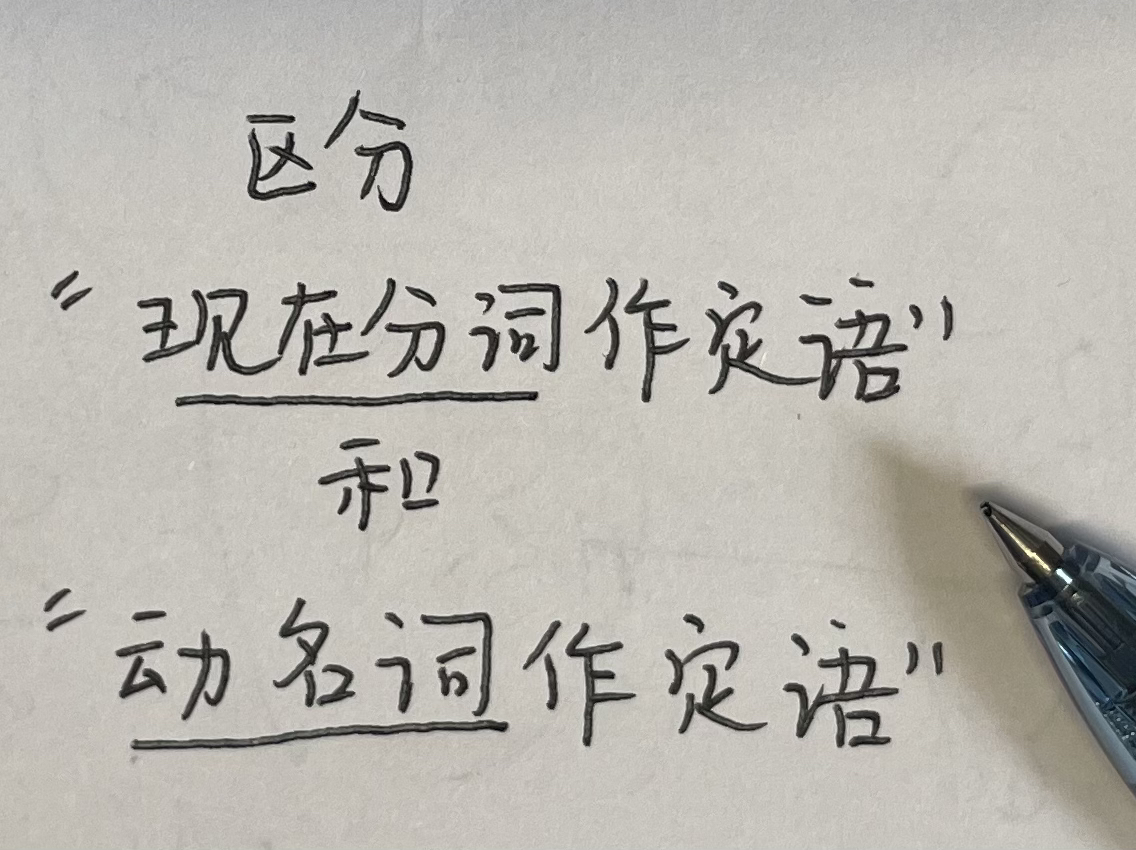 区分
“现在分词作定语”
和
“动名词作定语”